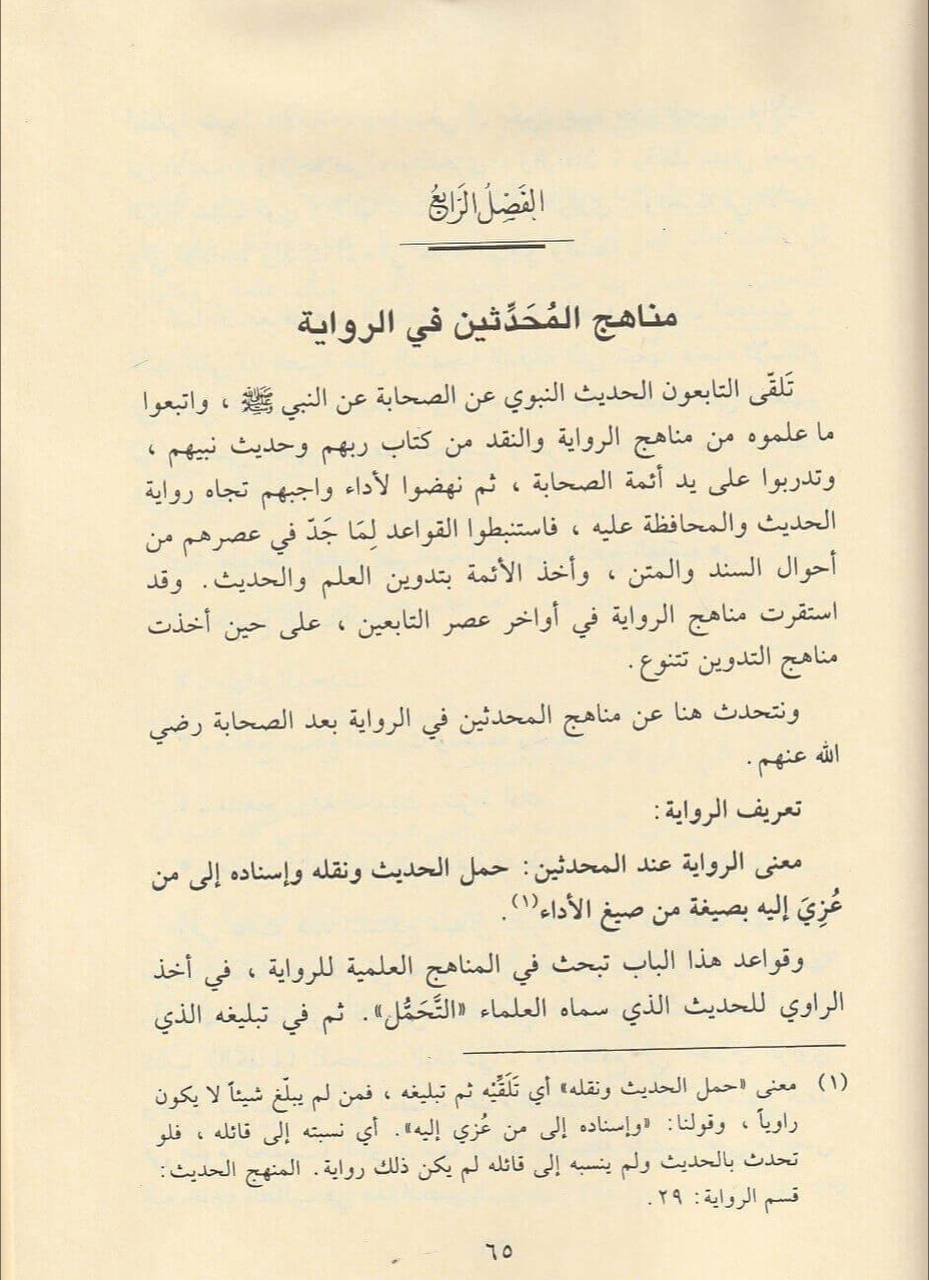 الفَصْلُ الرَّابِعُ
مناهج المُحَدِّثين في الرواية
تَلقّى التابعون الحديث النبوي عن الصحابة عن النبي ﷺ ، واتبعوا
ما علموه من مناهج الرواية والنقد من كتاب ربهم وحديث نبيهم ،
وتدربوا على يد أئمة الصحابة ، ثم نهضوا لأداء واجبهم تجاه رواية
الحديث والمحافظة عليه ، فاستنبطوا القواعد لِمَا جَدّ في عصرهم من
أحوال السند والمتن ، وأخذ الأئمة بتدوين العلم والحديث. وقد
استقرت مناهج الرواية في أواخر عصر التابعين ، على حين أخذت
مناهج التدوين تتنوع.
ونتحدث هنا عن مناهج المحدثين في الرواية بعد الصحابة رضي
الله عنهم.
تعريف الرواية:
معنى الرواية عند المحدثين: حمل الحديث ونقله وإسناده إلى من
عُزِيَ إليه بصيغة من صيغ الأداء(١).
وقواعد هذا الباب تبحث في المناهج العلمية للرواية ، في أخذ
الراوي للحديث الذي سماه العلماء «التَّحَمُّل». ثم في تبليغه الذي
(١) معنى «حمل الحديث ونقله» أي تَلَقِّيْه ثم تبليغه ، فمن لم يبلّغ شيئاً لا يكون
راوياً ، وقولنا: «وإسناده إلى من عُزي إليه». أي نسبته إلى قائله ، فلو
تحدث بالحديث ولم ينسبه إلى قائله لم يكن ذلك رواية. المنهج الحديث:
قسم الرواية: ٢٩.
٦٥